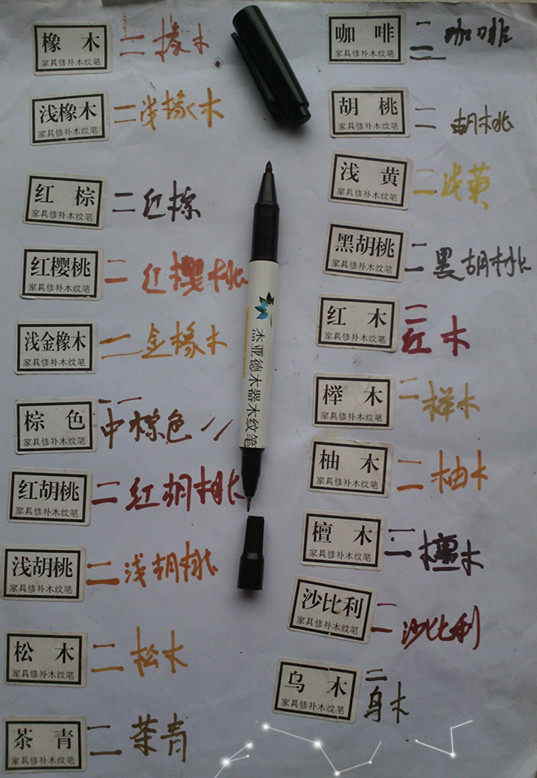 橡木
家具修补木纹笔
橡木
浅橡木
家具修补木纹笔
浅橡木
红棕
家具修补木纹笔
红棕
红樱桃
家具修补木纹笔
红樱桃
浅金橡木
家具修补木纹笔
金橡木
棕色
家具修补木纹笔
中棕色
红胡桃
家具修补木纹笔
红胡桃
浅胡桃
家具修补木纹笔
浅胡桃
松木
家具修补木纹笔
松木
茶青
家具修补木纹笔
茶青
杰亚德木器木纹笔
咖啡
家具修补木纹笔
咖啡
胡桃
家具修补木纹笔
胡桃
浅黄
家具修补木纹笔
浅黄
黑胡桃
家具修补木纹笔
黑胡桃
红木
家具修补木纹笔
红木
榉木
家具修补木纹笔
榉木
柚木
家具修补木纹笔
柚木
檀木
家具修补木纹笔
檀木
沙比利
家具修补木纹笔
沙比利
乌木
家具修补木纹笔
乌木